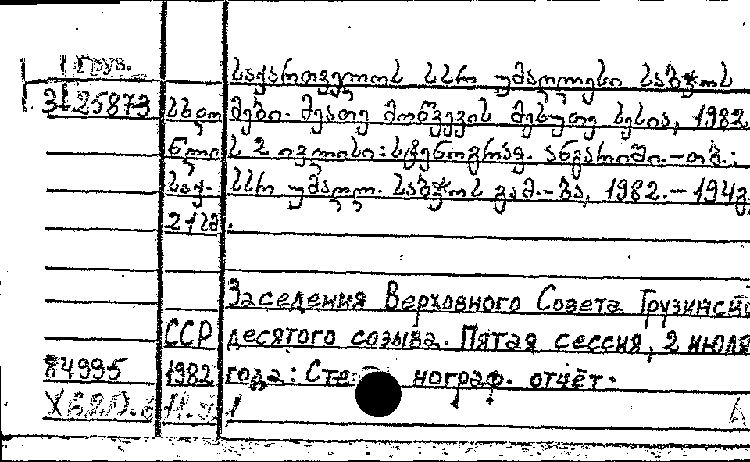 Груз.
საქართველოს სსრ უმაღლესი საბჭოს
3-25873 სხდომები. მეათე მოწვევის მეხუთე სესია, 1982
წლის 2 ივლისი: სტენოგრაფ. ანგარიში.-თბ.:
საქ. სსრ უმაღლ. საბჭოს გამ.-ბა, 1982.-194გვ
21სმ.
Заседения Верховного Совета Грузинской
ССР десятого созыва. Пятая сессия, 2 июля
84995 1982 года: Стенограф. отчёт.